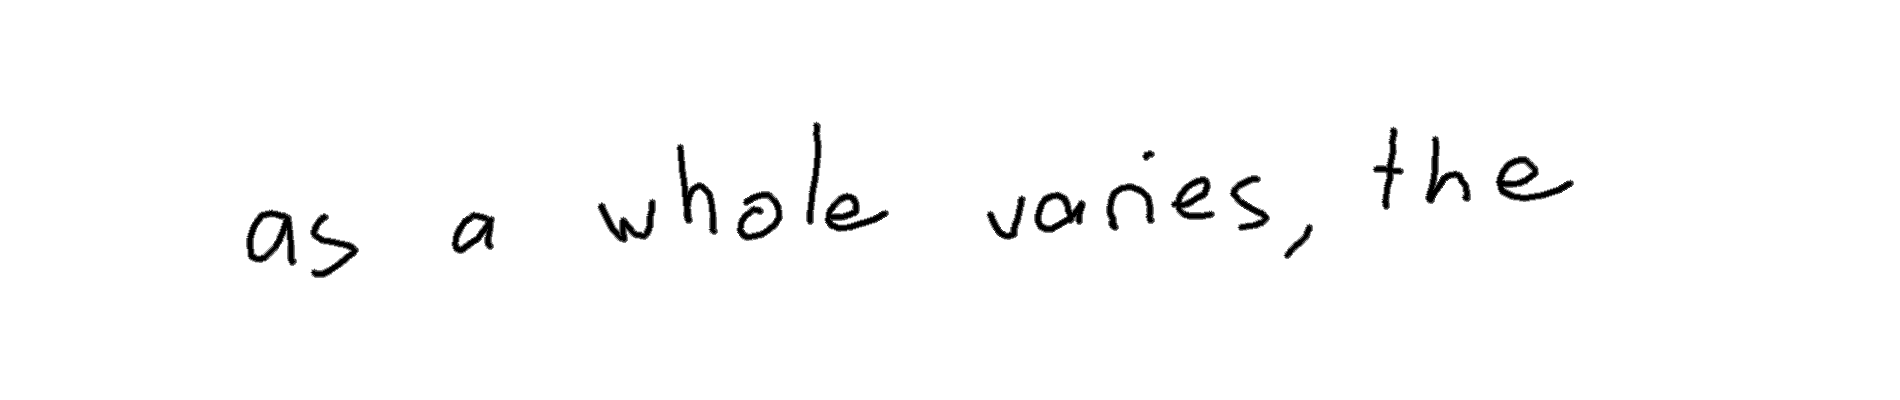 as a whole varies, the